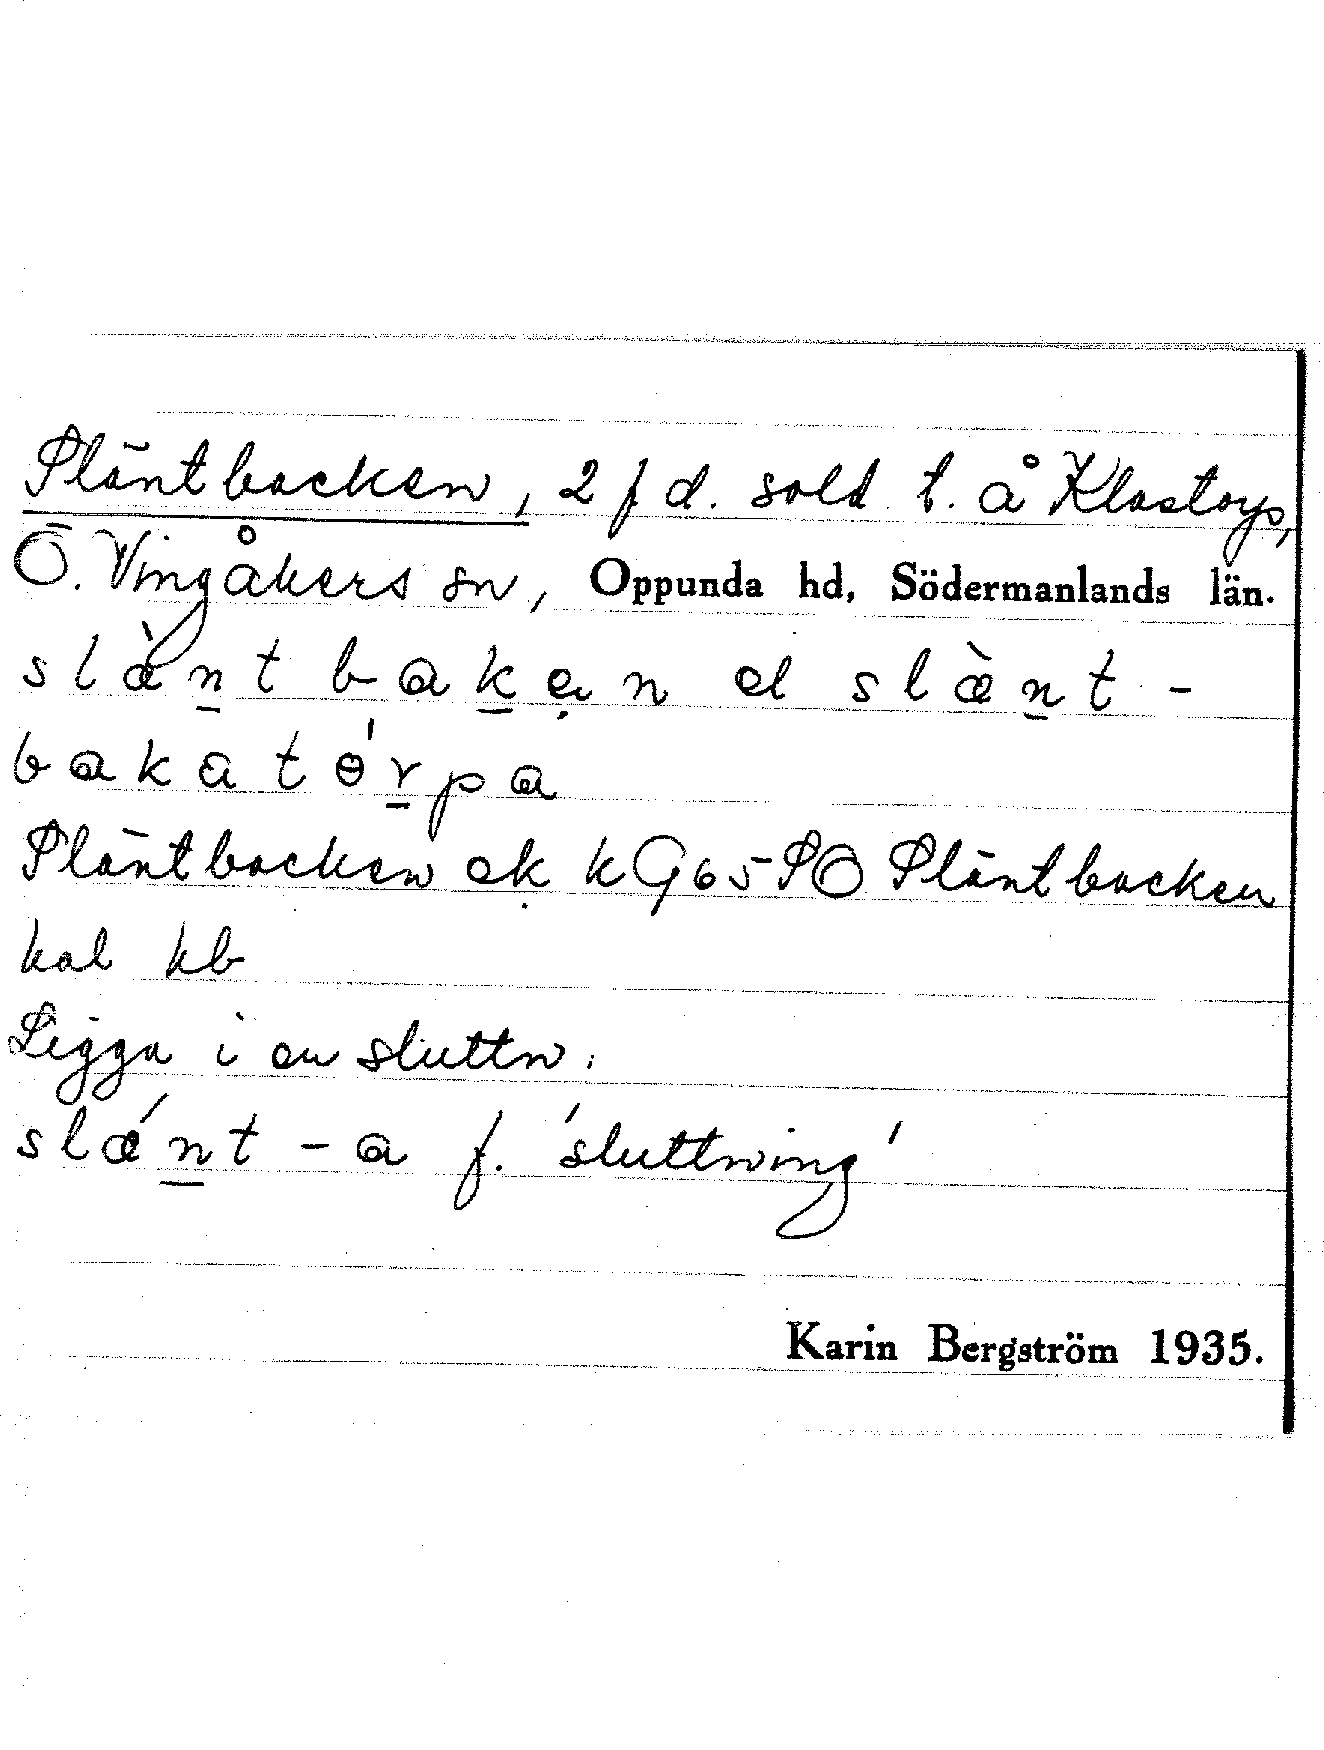 Släntbacken, 2 f d. sold t. å Klastorp,
Ö. Vingåkers sn, Oppunda hd, Södermanlands län.
slæ̀n̲t bak̲ẹn el slæ̀n̲t -
bakatɵ́r̲pa
Släntbacken ek kG65SO Släntbacken
hal kb
Ligga i en sluttn.
slǽn̲t - a f. 'sluttning'
Karin Bergström 1935.